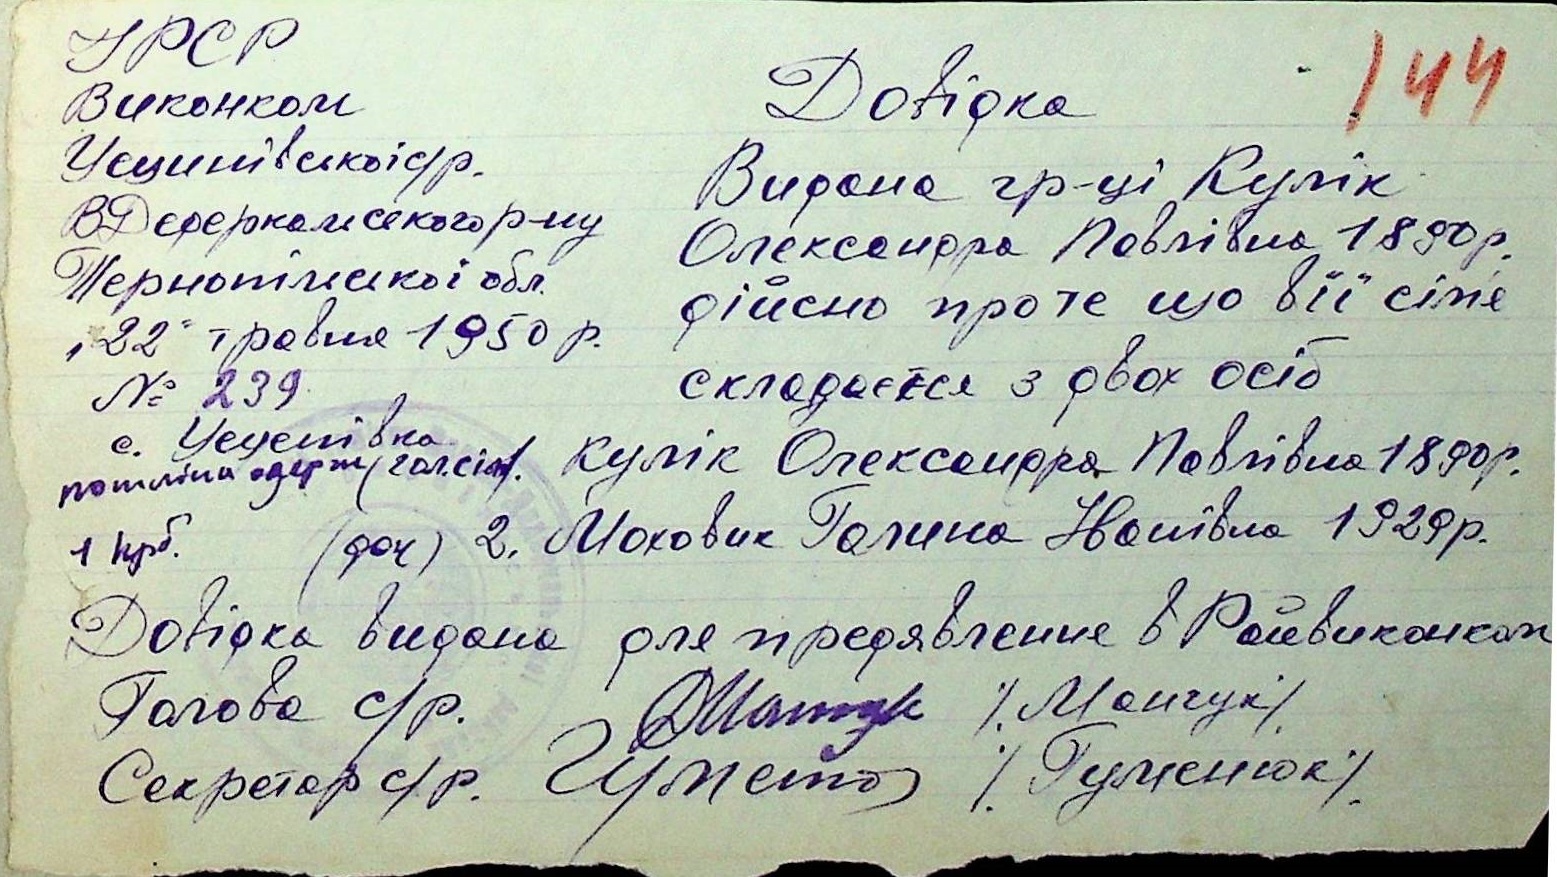 УРСР
Виконком
Усципівської с/р.
В Дедеркальського р-ну
Тернопільської обл.
"22" травня 1950 р.
№ 239
с.
1 крб.
144
Довідка
Видана гр-ці Кулік
Олександра Павлівна 1890р.
дійсно про те що в її сімє
складается з двох осіб
1. Кулік Олександра Павлівна 1890р.
(доч) 2. Маковик Галина Іванівна 1929р.
Довідка видана для предявленне в Райвиконком
Голова с/р. /Манчук/
Секретар с/р. /Гуменюк/